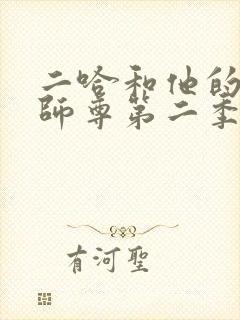 二哈和他的
師尊第二季
有河聖